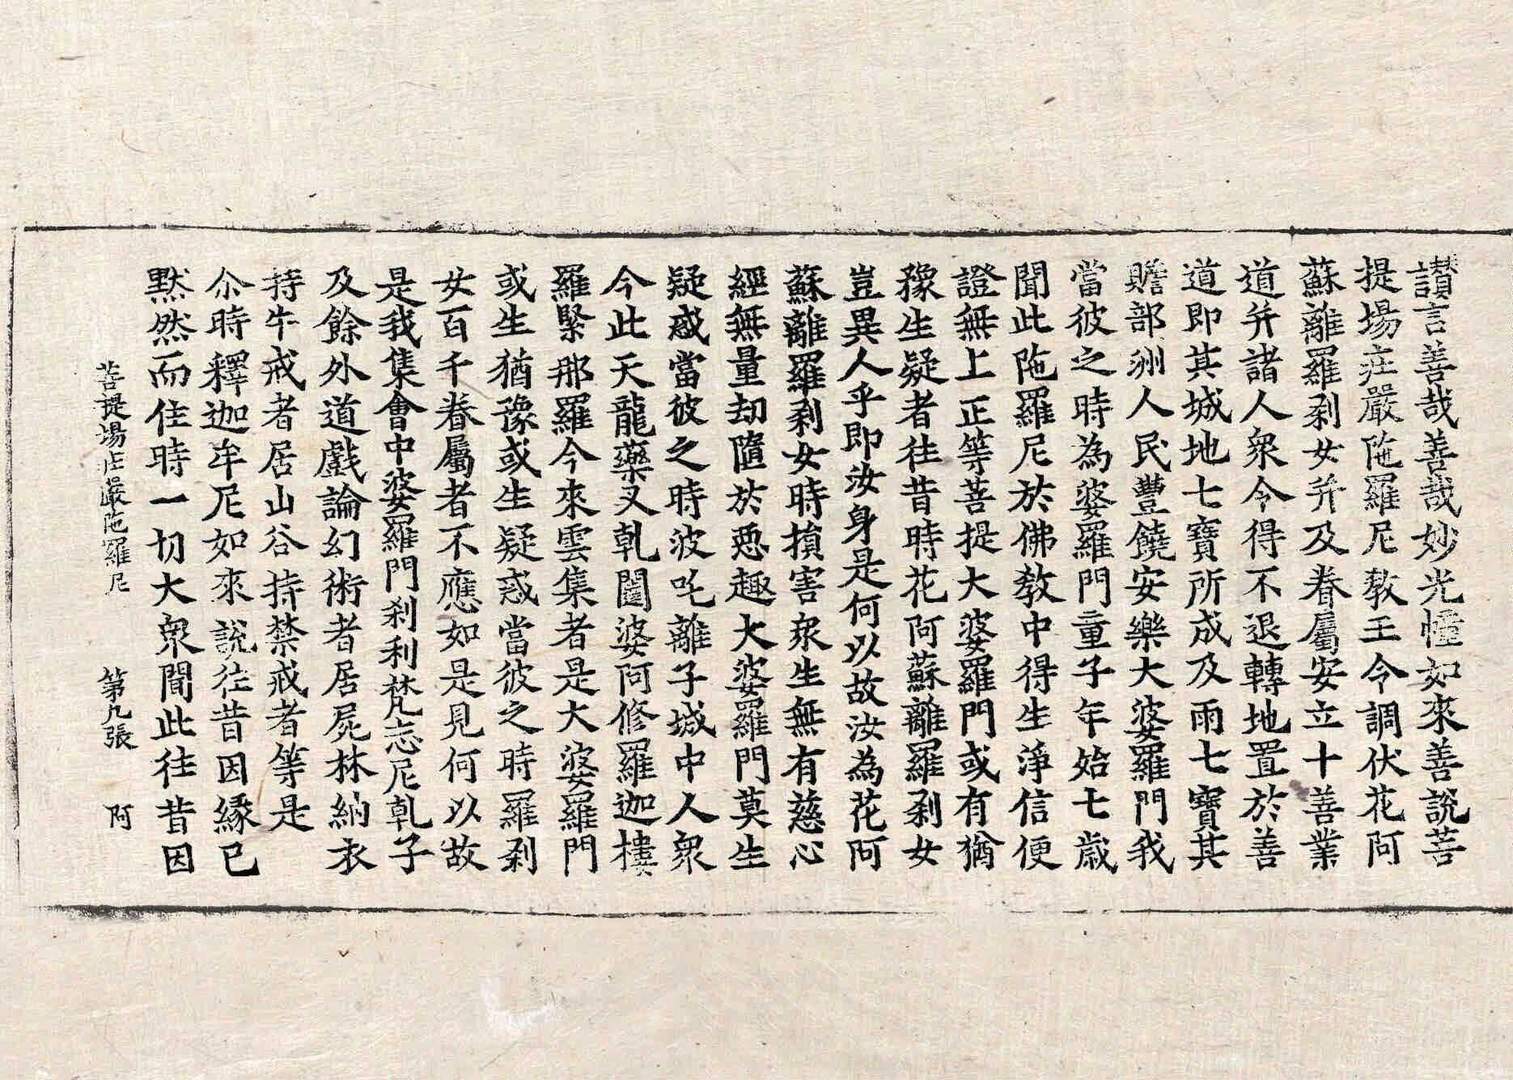 讃言善哉善哉妙光幢如來善說菩
提場莊嚴陁羅尼教王今調伏花阿
蘇離羅剎女并及眷屬安立十善業
道并諸人衆令得不退轉地置於善
道即其城地七寶所成及雨七寶其
贍部洲人民豐饒安樂大婆羅門我
當彼之時為婆羅門童子年始七歲
聞此陁羅尼於佛教中得生淨信便
證無上正等菩提大婆羅門或有猶
豫生疑者往昔時花阿蘇離羅剎女
豈異人乎即汝身是何以故汝為花阿
蘇離羅剎女時損害衆生無有慈心
經無量劫隨於惡趣大婆羅門莫生
疑惑當彼之時波吒離子城中人衆
今此天龍藥叉乹闥婆阿修羅迦樓
羅緊那羅今來雲集者是大婆羅門
或生猶豫或生疑惑當彼之時羅剎
女百千眷屬者不應如是見何以故
是我集會中婆羅門剎利梵志尼乹子
及餘外道戲論幻術者居屍林納衣
持牛戒者居山谷持禁戒者等是
尒時釋迦牟尼如來說往昔因緣已
默然而住時一切大衆聞此往昔因
菩提場莊嚴陁羅尼 第九張 阿